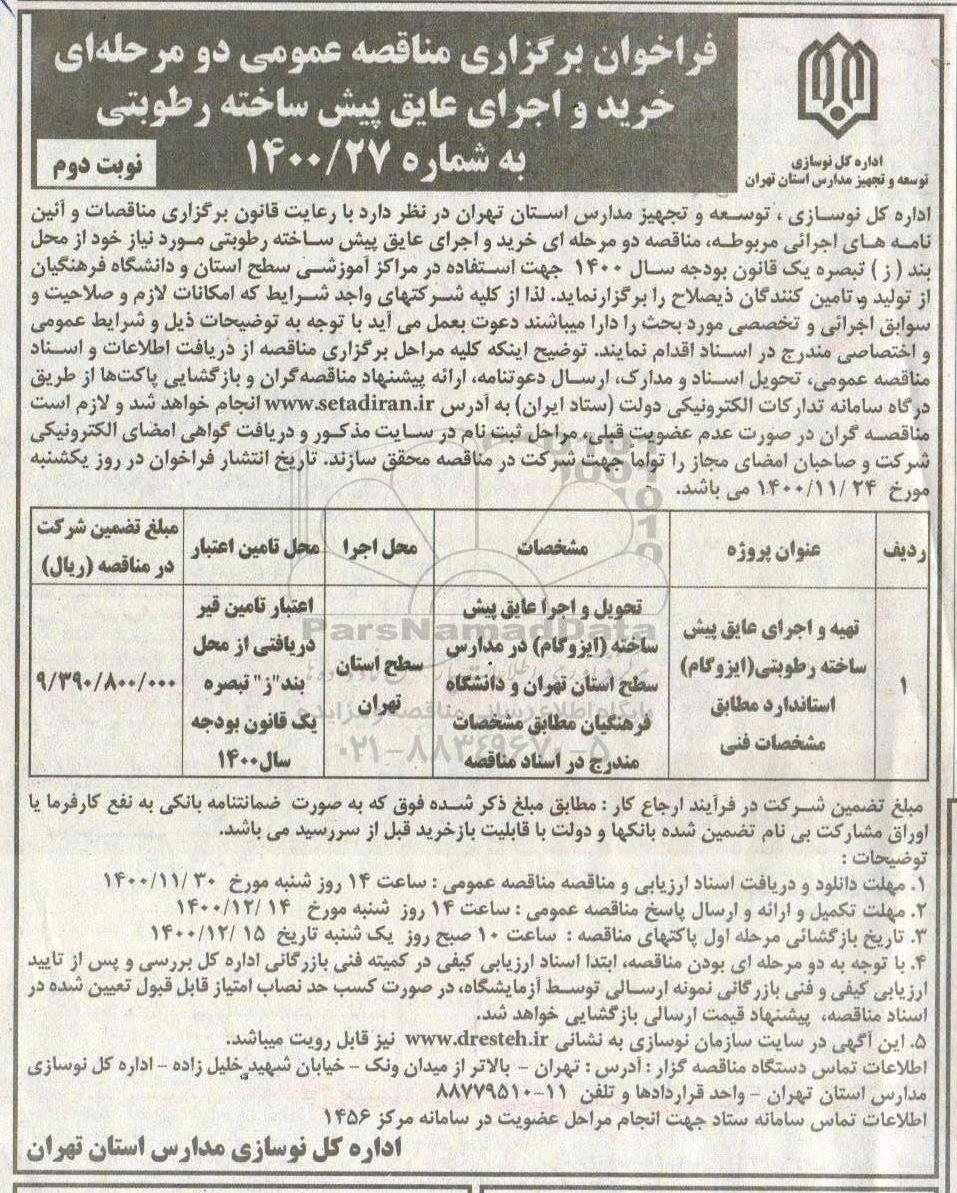 فراخوان برگزاری مناقصه عمومی دو مرحله‌ای
خرید و اجرای عایق پیش ساخته رطوبتی
به شماره ۱۴۰۰/۲۷
نوبت دوم
اداره کل نوسازی
توسعه و تجهیز مدارس استان تهران
اداره کل نوسازی ، توسعه و تجهیز مدارس استان تهران در نظر دارد با رعایت قانون برگزاری مناقصات و آئین
نامه های اجرائی مربوطه، مناقصه دو مرحله ای خرید و اجرای عایق پیش ساخته رطوبتی مورد نیاز خود از محل
بند ( ز ) تبصره یک قانون بودجه سال ۱۴۰۰ جهت استفاده در مراکز آموزشی سطح استان و دانشگاه فرهنگیان
از تولید و تامین کنندگان ذیصلاح را برگزارنماید. لذا از کلیه شرکتهای واجد شرایط که امکانات لازم و صلاحیت و
سوابق اجرائی و تخصصی مورد بحث را دارا میباشند دعوت بعمل می آید با توجه به توضیحات ذیل و شرایط عمومی
و اختصاصی مندرج در اسناد اقدام نمایند. توضیح اینکه کلیه مراحل برگزاری مناقصه از دریافت اطلاعات و اسناد
مناقصه عمومی، تحویل اسناد و مدارک، ارسال دعوتنامه، ارائه پیشنهاد مناقصه‌گران و بازگشایی پاکت‌ها از طریق
درگاه سامانه تدارکات الکترونیکی دولت (ستاد ایران) به آدرس www.setadiran.ir انجام خواهد شد و لازم است
مناقصه گران در صورت عدم عضویت قبلی، مراحل ثبت نام در سایت مذکور و دریافت گواهی امضای الکترونیکی
شرکت و صاحبان امضای مجاز را تواماً جهت شرکت در مناقصه محقق سازند. تاریخ انتشار فراخوان در روز یکشنبه
مورخ ۱۴۰۰/۱۱/۲۴ می باشد.
ردیف
عنوان پروژه
مشخصات
محل اجرا
محل تامین اعتبار
مبلغ تضمین شرکت
در مناقصه (ریال)
۱
تهیه و اجرای عایق پیش
ساخته رطوبتی(ایزوگام)
استاندارد مطابق
مشخصات فنی
تحویل و اجرا عایق پیش
ساخته (ایزوگام) در مدارس
سطح استان تهران و دانشگاه
فرهنگیان مطابق مشخصات
مندرج در اسناد مناقصه
سطح استان
تهران
اعتبار تامین قیر
دریافتی از محل
بند"ز" تبصره
یک قانون بودجه
سال۱۴۰۰
۹/۳۹۰/۸۰۰/۰۰۰
ParsNamadData
پایگاه اطلاع رسانی مناقصه و مزایده
۰۲۱-۸۸۳۴۹۶۷۰-۵
مبلغ تضمین شرکت در فرآیند ارجاع کار : مطابق مبلغ ذکر شده فوق که به صورت ضمانتنامه بانکی به نفع کارفرما یا
اوراق مشارکت بی نام تضمین شده بانکها و دولت با قابلیت بازخرید قبل از سررسید می باشد.
توضیحات :
۱. مهلت دانلود و دریافت اسناد ارزیابی و مناقصه مناقصه عمومی : ساعت ۱۴ روز شنبه مورخ ۱۴۰۰/۱۱/۳۰
۲. مهلت تکمیل و ارائه و ارسال پاسخ مناقصه عمومی : ساعت ۱۴ روز شنبه مورخ ۱۴۰۰/۱۲/۱۴
۳. تاریخ بازگشائی مرحله اول پاکتهای مناقصه : ساعت ۱۰ صبح روز یک شنبه تاریخ ۱۴۰۰/۱۲/۱۵
۴. با توجه به دو مرحله ای بودن مناقصه، ابتدا اسناد ارزیابی کیفی در کمیته فنی بازرگانی اداره کل بررسی و پس از تایید
ارزیابی کیفی و فنی بازرگانی نمونه ارسالی توسط آزمایشگاه، در صورت کسب حد نصاب امتیاز قابل قبول تعیین شده در
اسناد مناقصه، پیشنهاد قیمت ارسالی بازگشایی خواهد شد.
۵. این آگهی در سایت سازمان نوسازی به نشانی www.dresteh.ir نیز قابل رویت میباشد.
اطلاعات تماس دستگاه مناقصه گزار : آدرس : تهران - بالاتر از میدان ونک - خیابان شهید خلیل زاده - اداره کل نوسازی
مدارس استان تهران - واحد قراردادها و تلفن ۱۱-۸۸۷۷۹۵۱۰
اطلاعات تماس سامانه ستاد جهت انجام مراحل عضویت در سامانه مرکز ۱۴۵۶
اداره کل نوسازی مدارس استان تهران